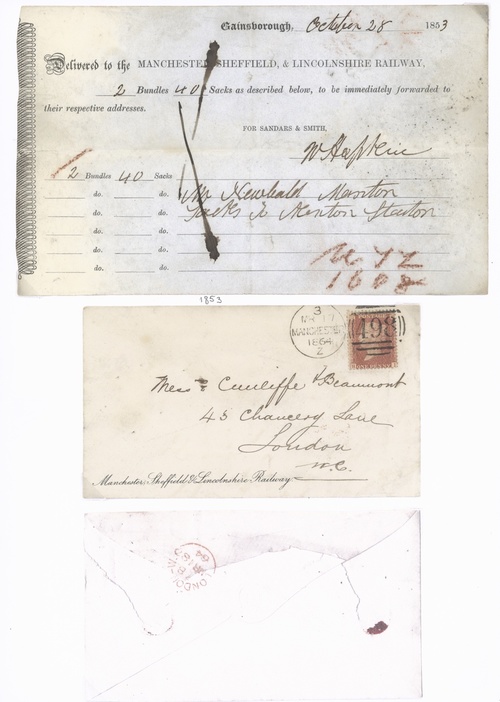 Gainsborough, October 28 1853
Delivered to the MANCHESTER, SHEFFIELD, & LINCOLNSHIRE RAILWAY,
2 Bundles 40 Sacks as described below, to be immediately forwarded to
their respective addresses.
FOR SANDARS & SMITH,
2 Bundles 40 Sacks
do. do. Mr Newbald Manton
do. do. Sacks to Manton Station
do. do.
do. do.
do. do.
1608
1853
3
MANCHESTER
1864
Z
498
ONE PENNY
Messrs Cunliffe & Beaumont
43 Chancery Lane
London
W.C.
Manchester, Sheffield & Lincolnshire Railway
LONDON W.C
64